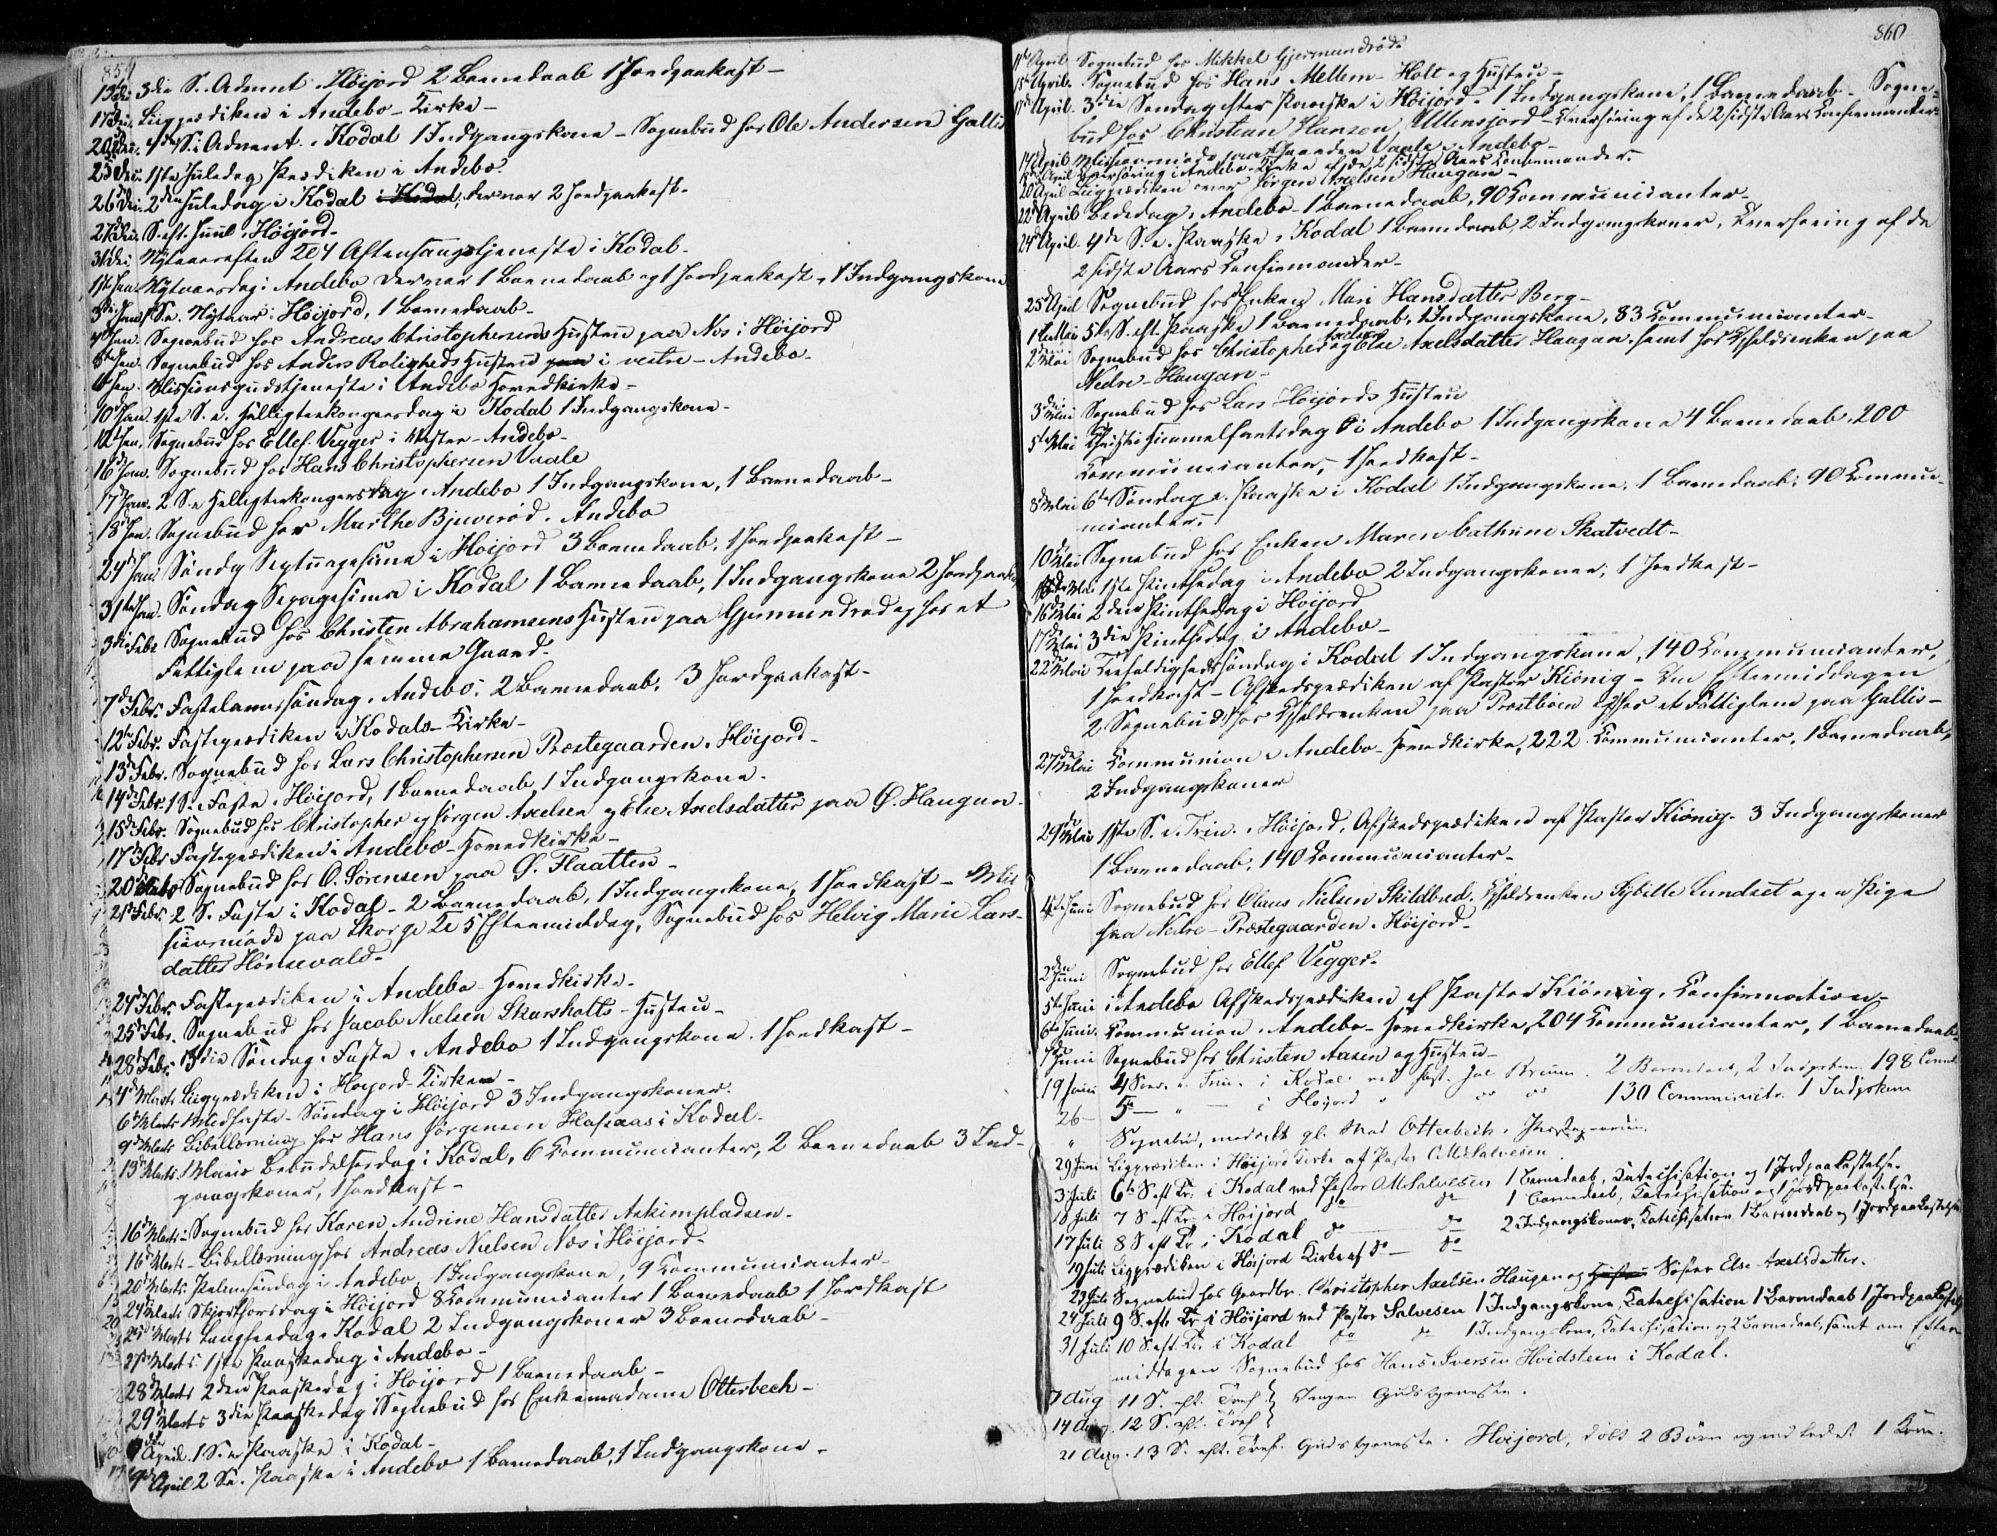 859
13de Dec. 3die S. Advent i Höijord 2 Barnedaab 1 Jordpaakast-
17de Dec. Liigprædiken i Andebo-Kirke-
20de Dec. 4de S. i Advent i Kodal 1 Indgangskone- Sognebud hos Ole Andersen Gallis
25de Dec. 1ste Juledag, Prædiken i Andebo.
26de Dec. 2den Juledag i Kodal i Kodal, der var 2 Jordpaakast.
27de Dec. S. eft. Juul i Höijord-
31te Dec. Nytaarsaften Kl 4 Aftensangstjeneste i Kodal-
1ste Jan. Nytaarsdag i Andebo der var 1 Barnedaab og 1 Jordpaakast, 1 Indgangskone
3die Jan. S. e. Nytaar i Höijord, 1 Barnedaab-
4de Jan. Sognebud hos Andreas Christophersens Hustru paa Nes i Höijord
8de Jan. Sognebud hos Anders Roligheds Hustru paa i vestre-Andebo-
Jan. Missionsgudstjeneste i Andebo Hovedkirke-
10de Jan. 1ste S. e. Helligtrekongersdag i Kodal 1 Indgangskone-
12te Jan. Sognebud hos Ellef Vegger i Vester-Andebo-
16de Jan. Sognebud hos Hans Christophersen Vaale
17de Jan. 2 S. e. Helligtrekongersdag i Andebo 1 Indgangskone, 1 Barnedaab-
18de Jan. Sognebud hos Marthe Bjuerød i Andebo
24de Jan. Söndag Septuagesima i Höijord 3 Barnedaab, 1 Jordpaakast-
31te Jan. Söndag Sexagesima i Kodal 1 Barnedaab, 1 Indgangskone 2 Jordpaak
3die Febr. Sognebud hos Christen Abrahamsens Hustru paa Gjermundrød og hos et
Fattiglem paa samme Gaard-
7de Febr. Fastelavnssöndag i Andebo, 2 Barnedaab, 3 Jordpaakast-
12te Febr. Fasteprædiken i Kodals-Kirke-
13de Febr. Sognebud hos Lars Christophersen Præstegaarden i Höijord-
14de Febr. 1 S. i Faste i Höijord, 1 Barnedaab, 1 Indgangskone.
15de Febr. Sognebud hos Christopher og Jörgen Axelsen og Else Axelsdatter paa Ø. Haugan-
17de Febr. Fasteprædiken i Andebo-Hovedkirke-
20de Febr. Sognebud hos O. Sörensen paa Ø. Flaatten-
21de Febr. 2 S. i Faste i Kodal- 2 Barnedaab, 1 Indgangskone, 1 Jordkast- Mis
sionsmöde paa Skorge Kl 5 Eftermiddag, Sognebud hos Helvig Marie Lars-
datter Hönsevald-
24de Febr. Fasteprædiken i Andebo Hovedkirke-
25de Febr. Sognebud hos Jacob Nielsen Skarsholts-Hustru-
28de Febr. 3die Söndag i Faste i Andebo 1 Indgangskone, 1 Jordkast-
4de Marts Liigprædiken i Höijord-Kirke-
6te Marts Midfaste-Söndag i Höijord 3 Indgangskoner.
9de Marts Bibellæsning hos Hans Jörgensen Hasaas i Kodal-
13de Marts Mariæ Bebudelsesdag i Kodal, 6 Communicanter, 2 Barnedaab 3 Ind-
gangskoner, 1 Jordkast-
16de Marts Sognebud hos Karen Andrine Hansdatter Askimpladsen-
16de Marts Bibellæsning hos Andreas Nielsen Nes i Höijord-
20de Marts Palmesöndag i Andebo, 1 Indgangskone, 9 Communicanter-
24de Marts Skjærthorsdag i Höijord 8 Communicanter 1 Barnedaab 1 Jordkast
25de Marts Langfredag i Kodal 2 Indgangskoner 3 Barnedaab-
27de Marts 1ste Paaskedag i Andebo-
28de Marts 2den Paaskedag i Höijord 1 Barnedaab-
29de Marts 3die Paaskedag Sognebud hos Enkemadame Otterbech-
April 1 S. e. Paaske i Kodal-
April 2 S. e. Paaske i Andebo 1 Barnedaab, 1 Indgangskone-
860
11te April Sognebud hos Mikkel Gjermundröd-
15de April Sognebud hos Hans Mellem-Holt og Hustru-
17de April 3die Söndag efter Paaske i Höijord 1 Indgangskone, 1 Barnedaab- Sogne-
bud hos Christian Hansen Ullensjord- Overhöring af de 2 sidste Aars Confirmander-
April Missionsmöde paa Gaarden Vaale i Andebo-
April Overhöring i Andebo-Kirke af de 2 sidste Aars Confirmander.
20de April Liigprædiken over Jörgen Axelsen Haugan-
22de April Bededag i Andebo- 1 Barnedaab, 90 Communicanter-
24de April 4de S. e. Paaske i Kodal 1 Barnedaab, 2 Indgangskoner, Overhöring af de
2 sidste Aars Confirmander-
25de April Sognebud hos Enken Mari Hansdatter Berg-
1ste Mai 5te S. eft. Paaske 1 Barnedaab, 1 Indgangskone, 83 Communicanter-
2den Mai Sognebud hos Christopher Axelsen og Else Axelsdatter Haugan, samt hos Kjeldsenken paa
Nedre-Haugan-
3die Mai Sognebud hos Lars Höijords Hustru
5te Mai Christi Himmelfartsdag i Andebo 1 Indgangskone 4 Barnedaab 200
Communicanter, 1 Jordkast-
8de Mai 6te Söndag e. Paaske i Kodal 1 Indgangskone, 1 Barnedaab, 90 Commu-
nicanter-
10de Mai Sognebud hos Enken Maren Cathrine Skatvedt-
15de Mai 1ste Pintsedag i Andebo 2 Indgangskoner, 1 Jordkast-
16de Mai 2den Pintsedag i Höijord
17de Mai 3die Pintsedag i Andebo-
22de Mai Trefoldighedssöndag i Kodal 1 Indgangskone, 140 Communicanter,
1 Jordkast- Afskedsprædiken af Pastor Kiönig- Om Eftermiddagen
2 Sognebud: hos Kjeldsenken paa Præstbøen og hos et Fattiglem paa Gallis-
27de Mai Communion i Andebo-Hovedkirke, 222 Communicanter, 1 Barnedaab,
2 Indgangskoner
29de Mai 1ste S. e. Trin. i Höijord, Afskedsprædiken af Pastor Kiönig- 3 Indgangskoner
1 Barnedaab, 140 Communicanter-
1ste Juni Sognebud hos Claus Nielsen Skildbred, Kjeldsenken Sybille Sundset og en Pige
paa Nedre-Præstegaarden i Höijord-
2den Juni Sognebud hos Ellef Vegger-
5te Juni i Andebo Afskedsprædiken af Pastor Kiönig, Confirmation-
6te Juni Communion i Andebo-Hovedkirke, 204 Communicanter, 1 Barnedaab-
7de Juni Sognebud hos Christen Aasen og Hustru-
19 Juni 4 Sönd. e. Trin. i Kodal ved Past. 2 Barnedaab, 2 Indgskon. 198 Comm
26 - 5te - " - i Höijord " " " 130 Communicntr. 1 Indgskone
" Sognebud, meddelt gl. Mad. Otterbech i Præstegaarden.
29 Juni Ligprædiken i Höijord Kirke af Pastor O M Salvesen
3 Juli 6te S. eft Tr. i Kodal ved Pastor O M Salvesen 1 Barnedaab, Katechisation og 1 Jordpaakastelse.
10 Juli 7 S eft Tr. i Höijord do do 1 Barnedaab, Katechisation og 1 Jordpaakastelse.
17 Juli 8 S eft Tr. i Kodal do do 2 Indgangskoner, Katechisation 1 Barnedaab og 1 Jordpaakastelse
19 Juli Ligprædiken i Höijord Kirke af do - do
23 Juli Sognebud hos Gaardbr. Christopher Axelsen Haugan og Hustru Söster Else Axelsdatter.
24 Juli 9 S. eft. Tr. i Höijord ved Pastor Salvesen 1 Indgangskone, Katechisation 1 Barnedaab 1 Jordpaakastelse
31 Juli 10 S. eft. Tr. i Kodal do do 1 Indgangskone, Katechisation og 2 Barnedaab, samt om Efter-
middagen Sognebud hos Hans Iversen Hvidsteen i Kodal.
7 Aug 11 S. eft. Tref } Ingen Gudstjeneste.
14 Aug. 12 S. eft. Tref }
21 Aug. 13 S. eft. Tref. Gudstjeneste i Höijord, döbt 2 Börn og indledet 1 Kone.